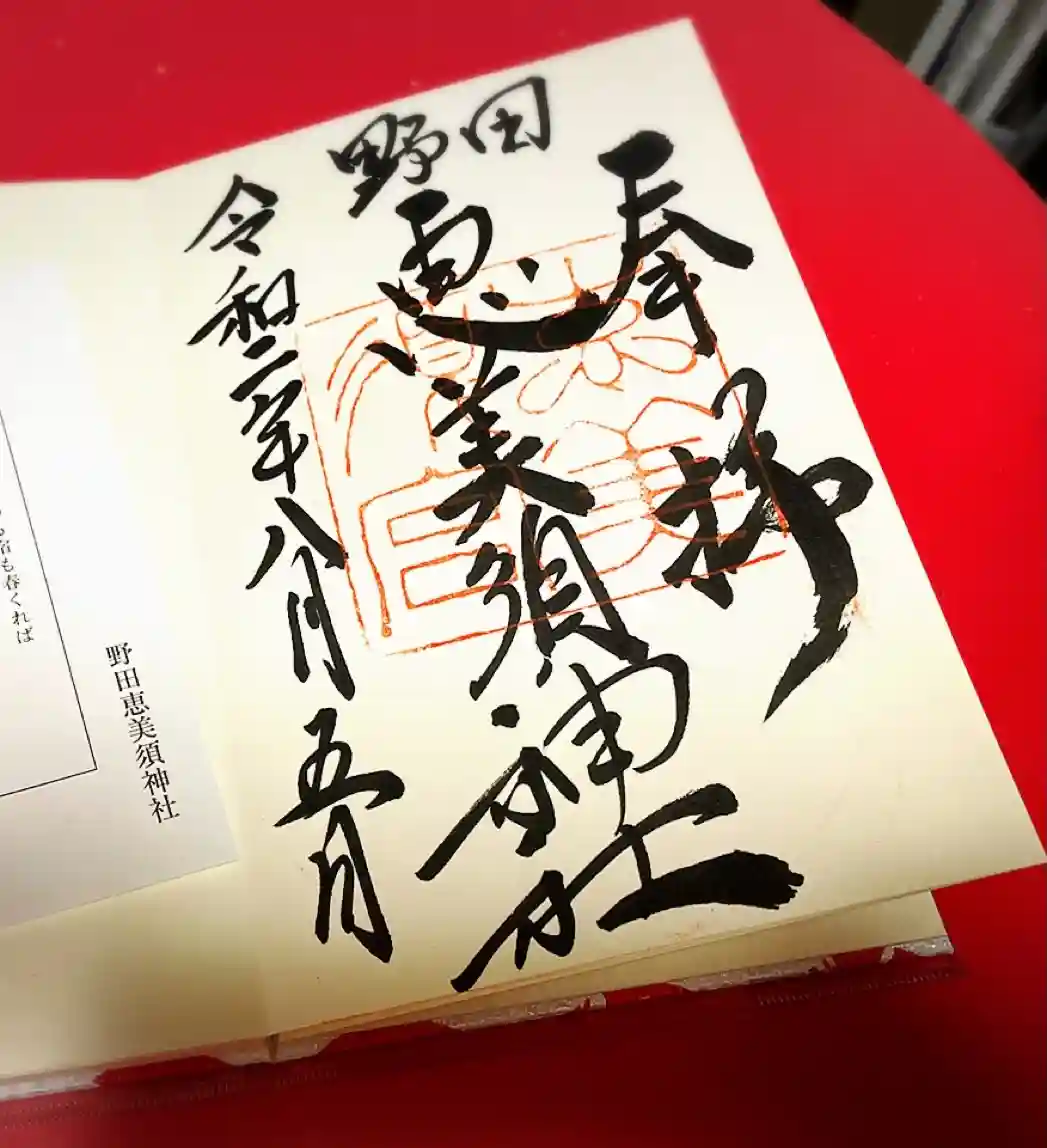 奉拝
野田
恵美須神社
令和二年八月五日
野田恵美須神社
宿も春くれば